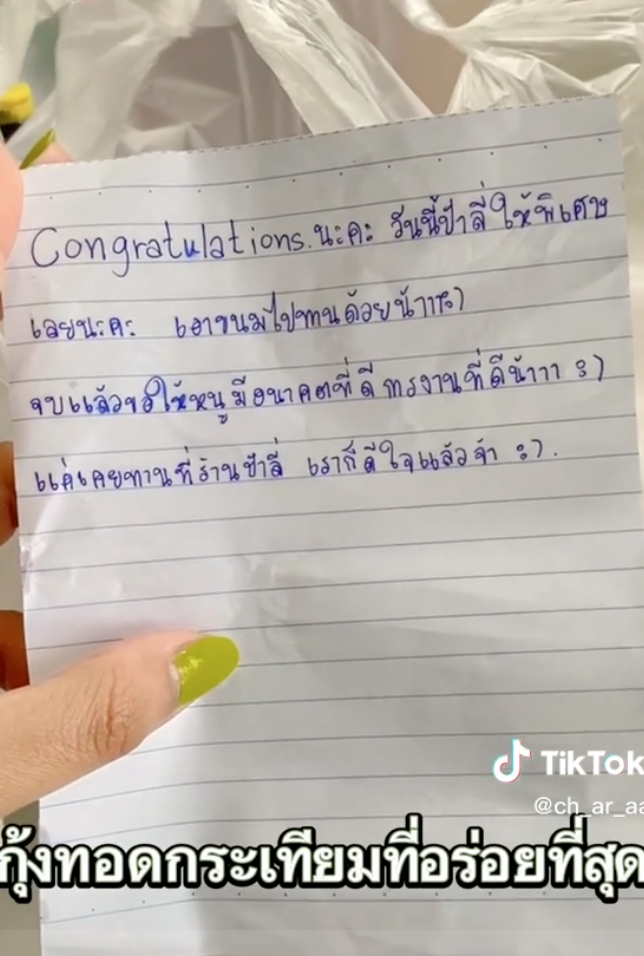 Congratulations.นะคะ วันนี้ป้าลี่ให้พิเศษ
เลยนะคะ เอาขนมไปทานด้วยน้าาา:)
จบแล้วขอให้หนูมีอนาคตที่ดี การงานที่ดีน้าาา :)
แค่เคยทานที่ร้านป้าลี่ เราก็ดีใจแล้วจ้า :).
TikTok
@ch_ar_aa
กุ้งทอดกระเทียมที่อร่อยที่สุด